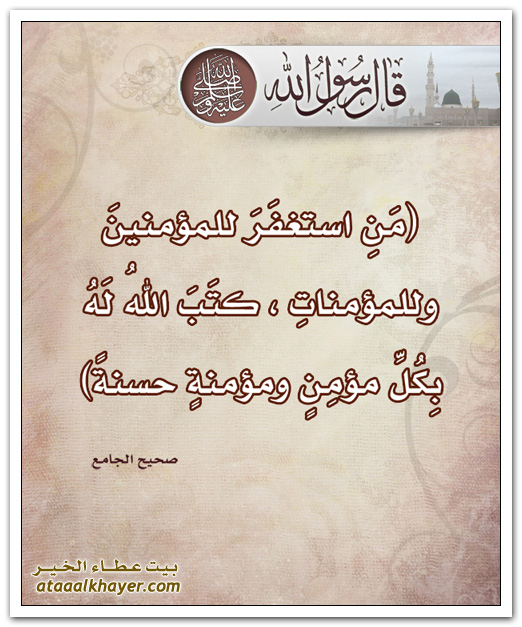 قال رسول الله صلى الله عليه وسلم
(مَنِ استغفَرَ للمؤمنينَ
وللمؤمناتِ ، كتَبَ اللهُ لَهُ
بِكُلِّ مؤمِنٍ ومؤمنةٍ حسنةً)
صحيح الجامع
بيت عطاء الخير
ataaalkhayer.com